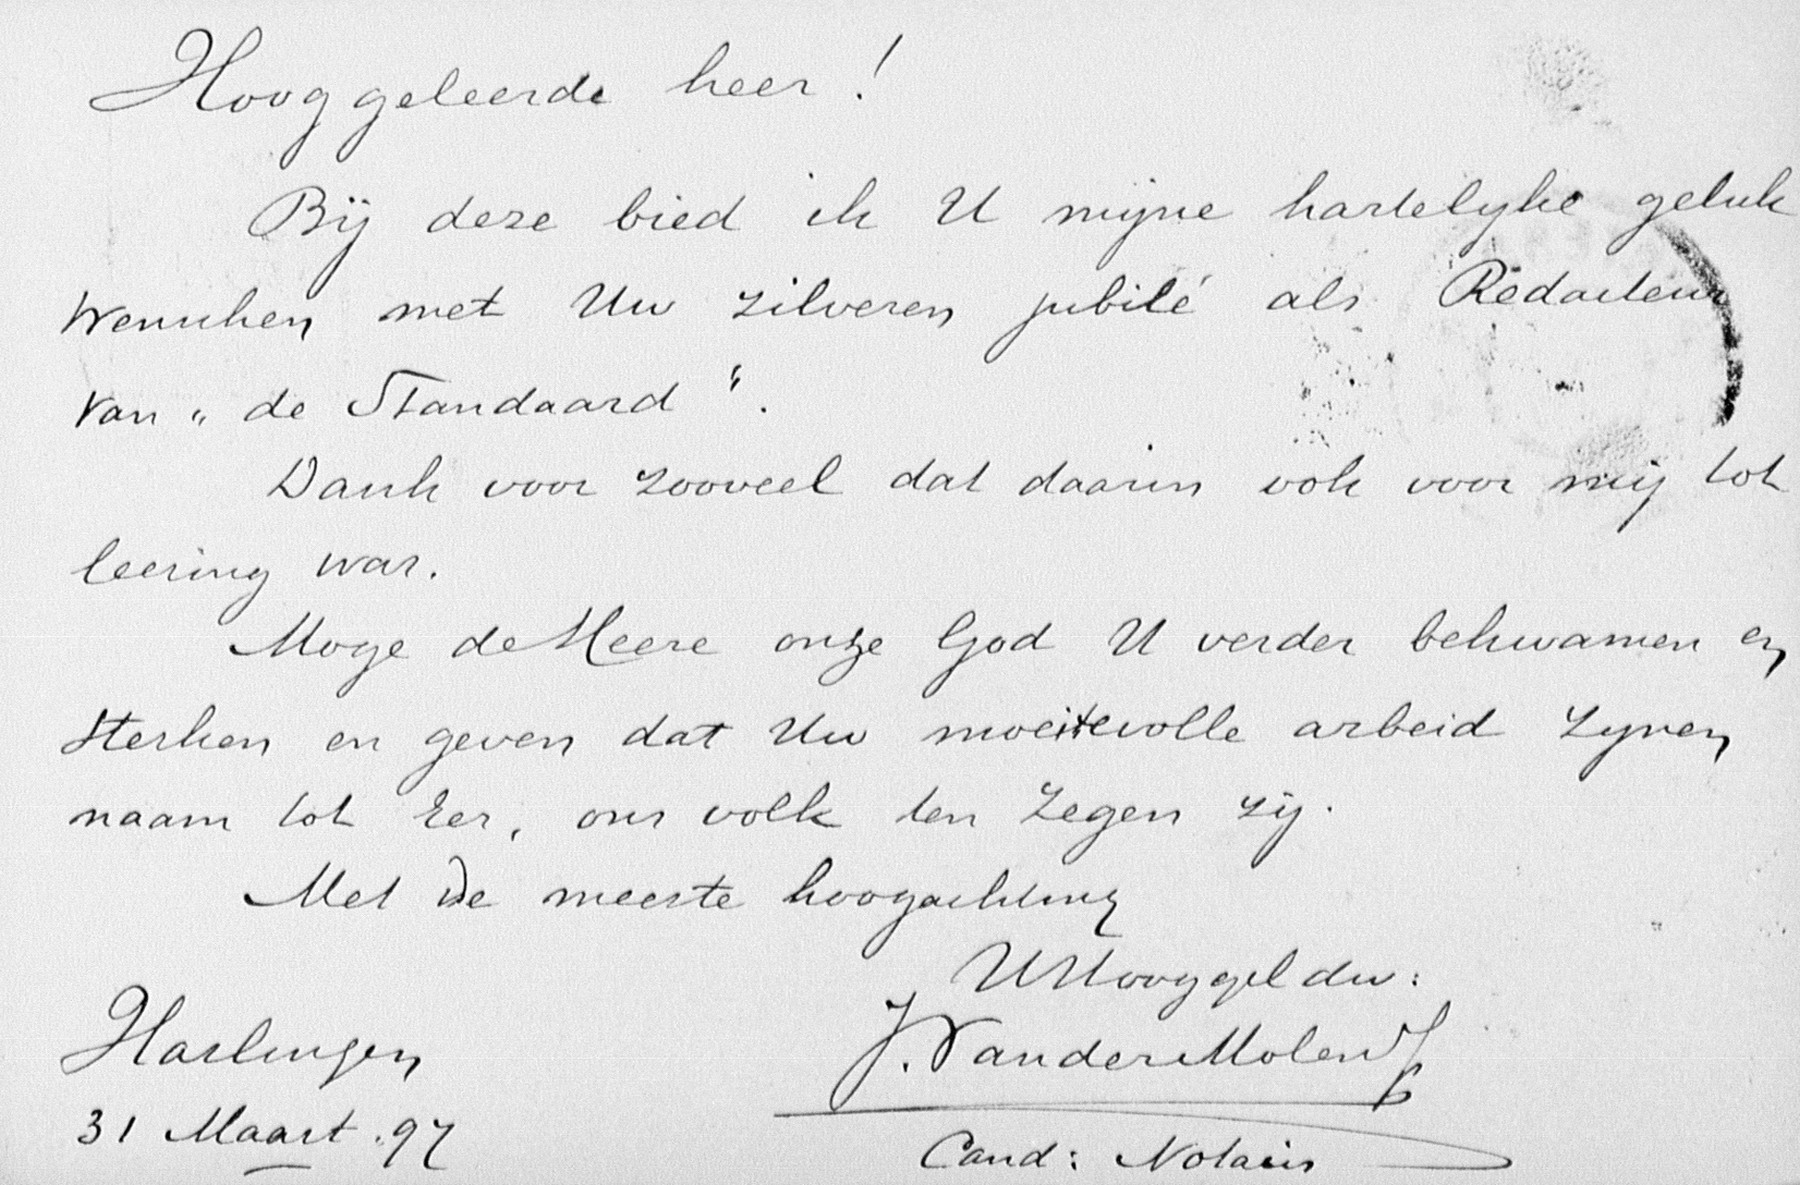 Hooggeleerde heer!
Bij deze bied ik U mijne hartelijke geluk
wenschen met Uw zilveren jubilé als Redacteur
van „de Standaard".
Dank voor zooveel dat daarin ook voor mij tot
leering was.
Moge de Heere onze God U verder bekwamen en
sterken en geven dat Uw moeitevolle arbeid Zijnen
naam tot Eer, ons volk ten zegen zij.
Met de meeste hoogachting
UHooggel dw:
J. Van der Molen
Harlingen
31 Maart. 97
Cand: Notaris